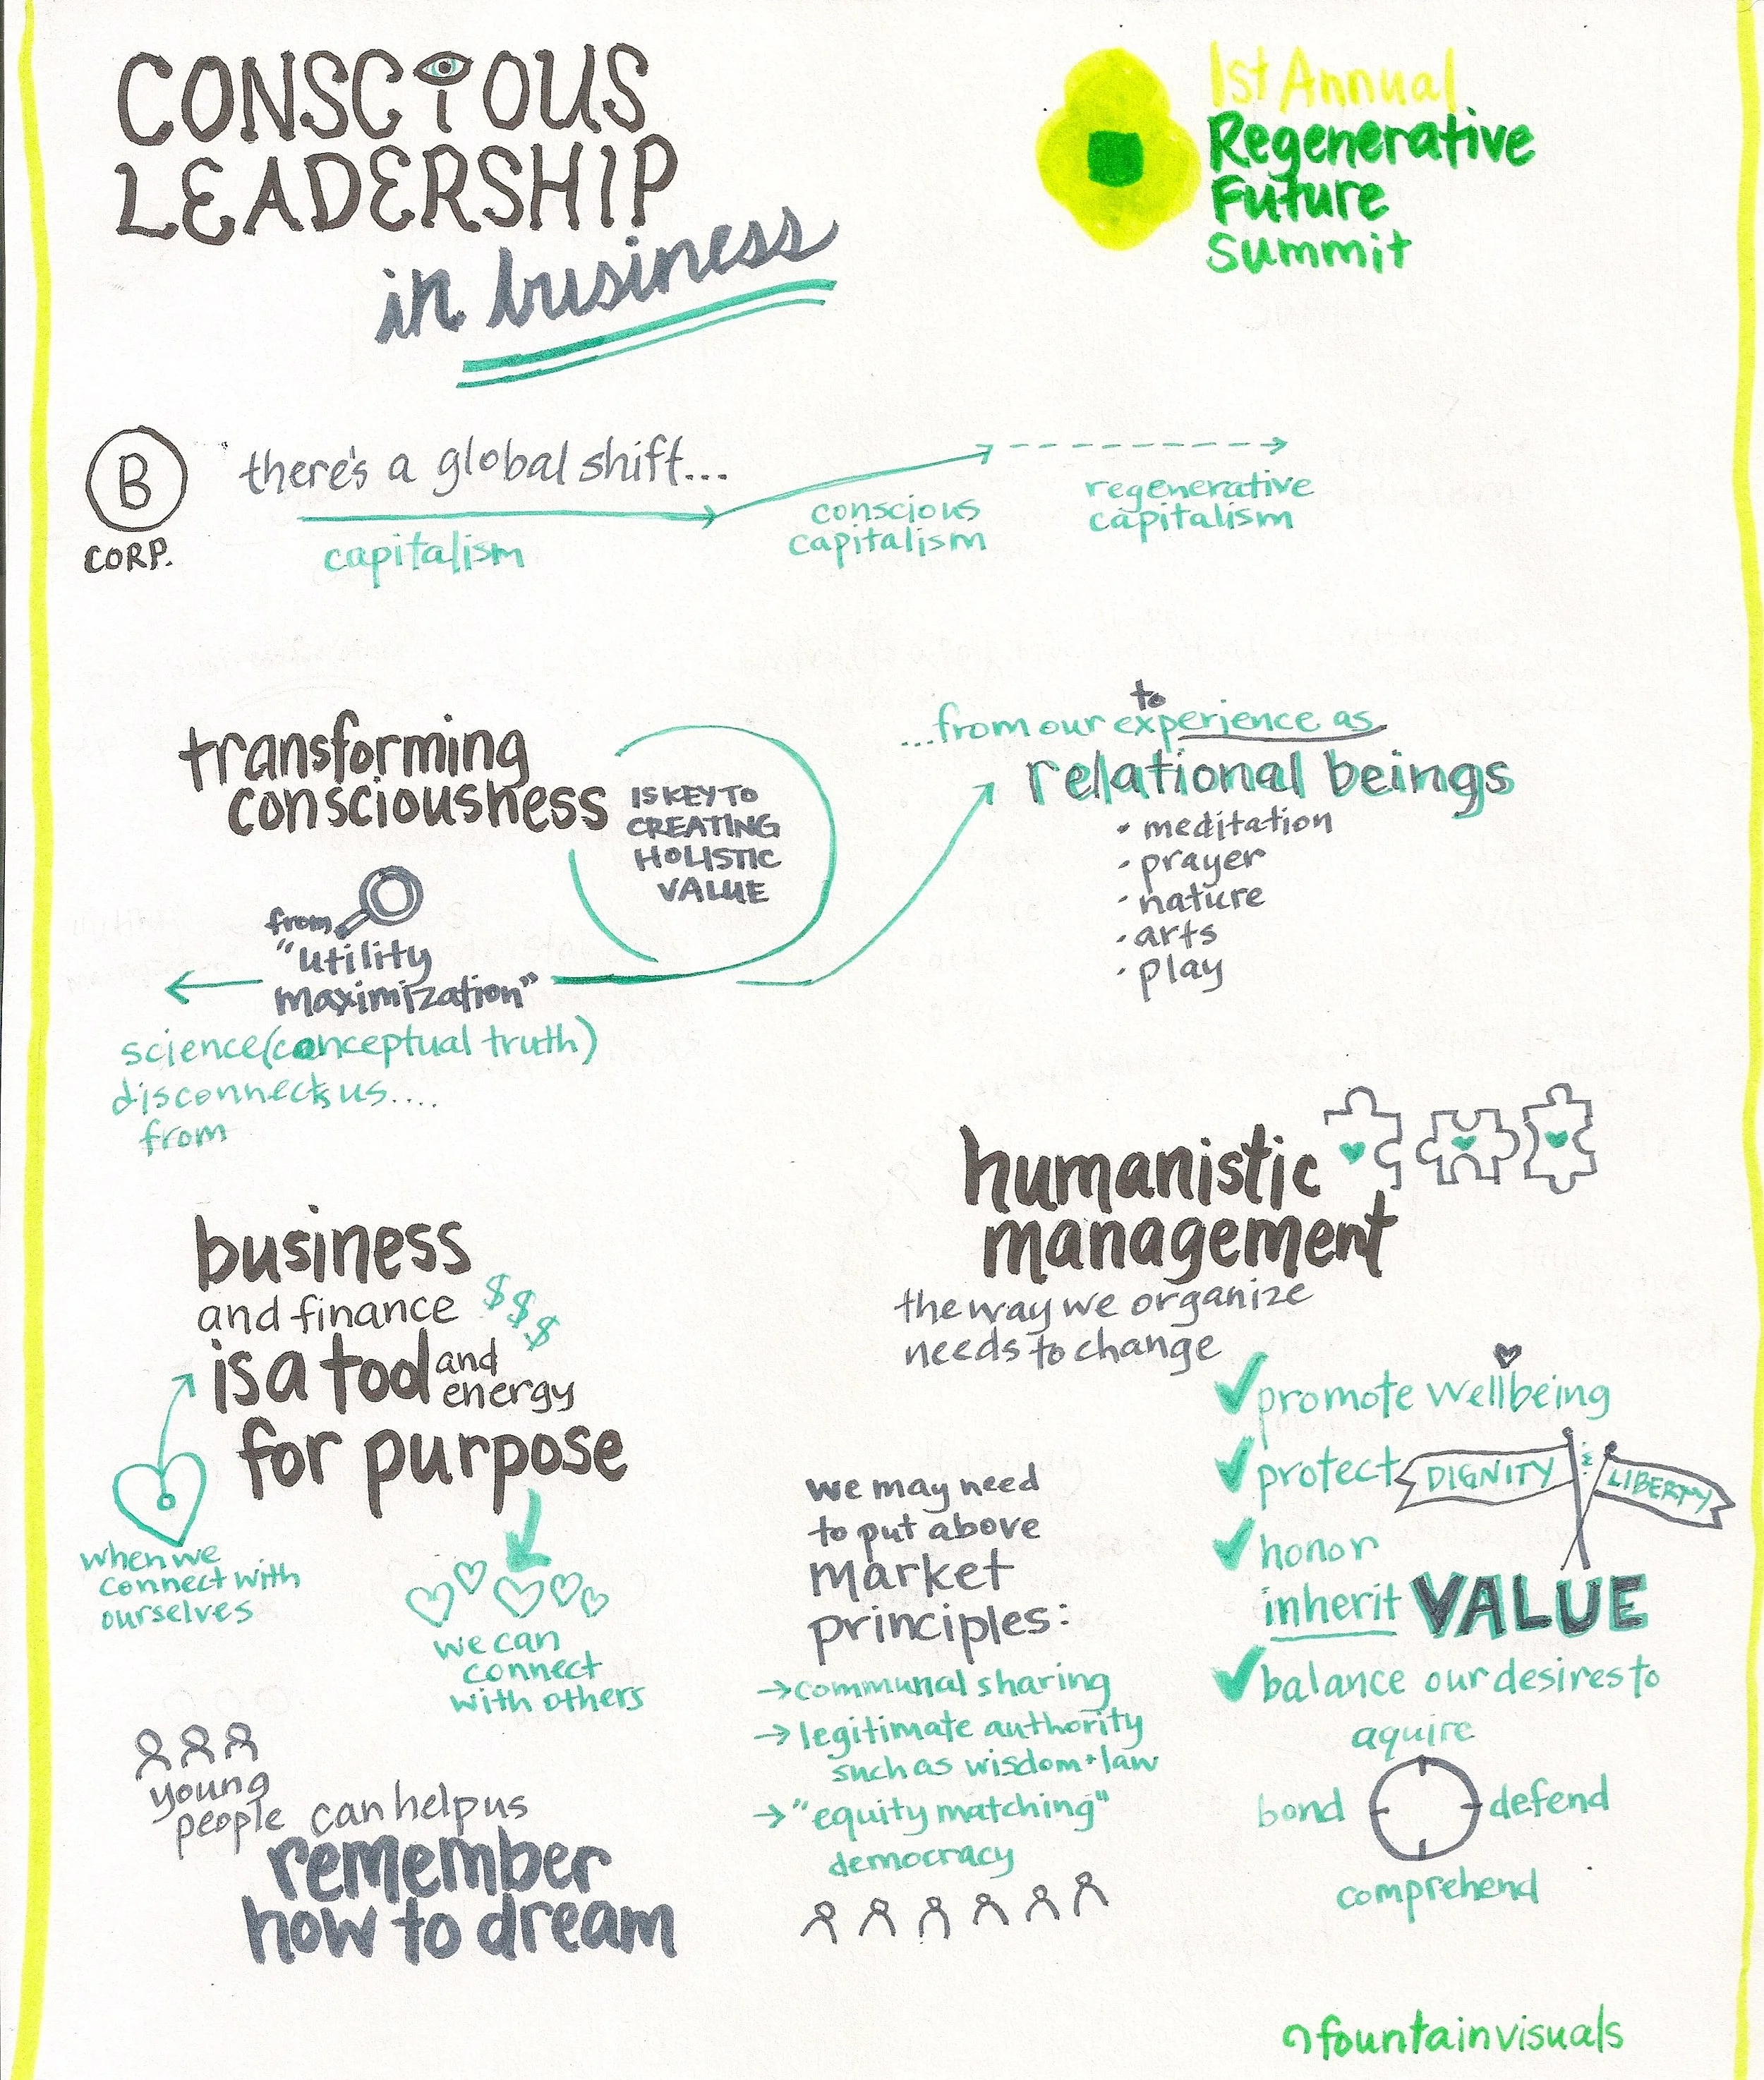 CONSCIOUS
LEADERSHIP
in business
1st Annual
Regenerative
Future
Summit
B
CORP.
there's a global shift...
capitalism
conscious
capitalism
regenerative
capitalism
transforming
consciousness
IS KEY TO
CREATING
HOLISTIC
VALUE
from
"utility
maximization"
science (conceptual truth)
disconnects us....
from
to
...from our experience as
relational beings
• meditation
• prayer
• nature
• arts
• play
business
and finance $$$
is a tool and
energy
for purpose
when we
connect with
ourselves
we can
connect
with others
young
people can help us
remember
how to dream
humanistic
management
the way we organize
needs to change
✓ promote wellbeing
✓ protect DIGNITY & LIBERTY
✓ honor
inherit VALUE
✓ balance our desires to
aquire
bond
defend
comprehend
we may need
to put above
market
principles:
→ communal sharing
→ legitimate authority
such as wisdom + law
→ "equity matching"
democracy
fountainvisuals